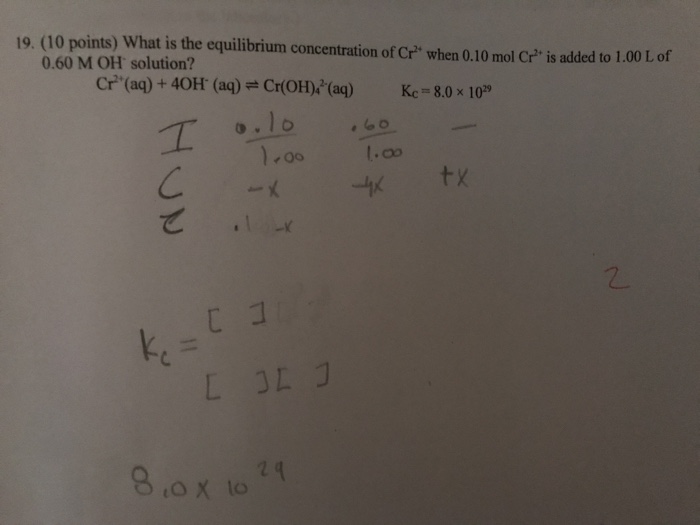 19. (10 points) What is the equilibrium concentration of Cr²⁺ when 0.10 mol Cr²⁺ is added to 1.00 L of
0.60 M OH⁻ solution?
Cr²⁺(aq) + 4OH⁻ (aq) ⇌ Cr(OH)₄²⁻(aq) Kc = 8.0 × 10²⁹
I 0.10 .60 —
1.00 1.00
C -x -4x +x
E .1 -x
2
[ ]
Kc =
[ ][ ]
8.0 x 10²⁹